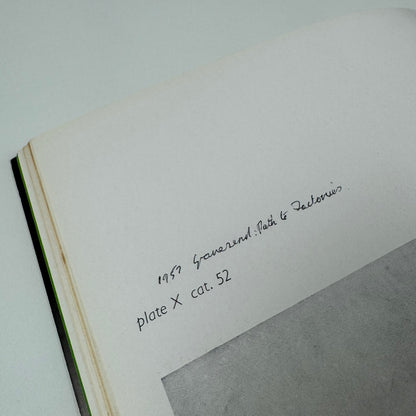 1957 Gravesend: Path to Factories.
plate X cat. 52